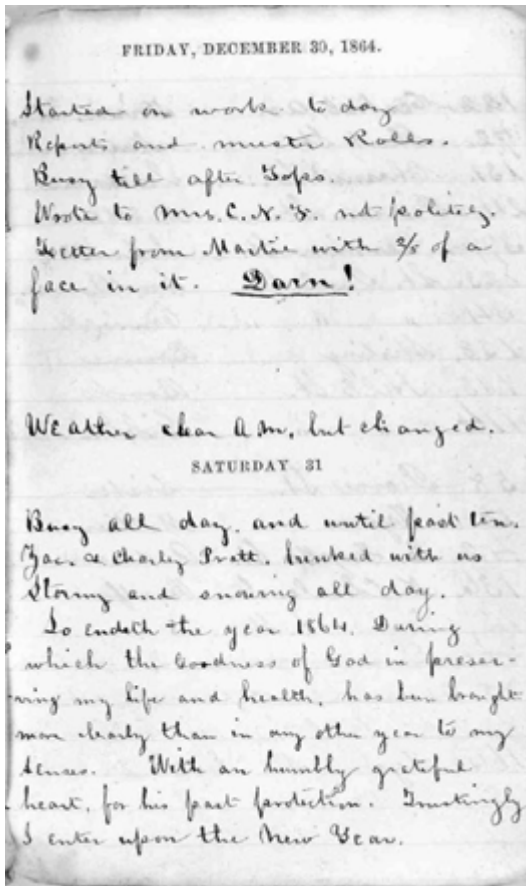 FRIDAY, DECEMBER 30, 1864.
Started on work to day
Reports and muster Rolls.
Busy till after Taps.
Wrote to Mrs. C. N. F. not politely
Letter from Mattie with 2/5 of a
face in it. Darn!
Weather clear A.M. but changed.
SATURDAY 31
Busy all day. and until past ten.
Zac. & Charley Pratt. bunked with us
Stormy and snowing all day.
So endeth the year 1864. During
which the Goodness of God in preser-
ving my life and health, has been brought
more clearly than in any other year to my
senses. With an humbly grateful
heart, for his past protection. Trustingly
I enter upon the New Year.